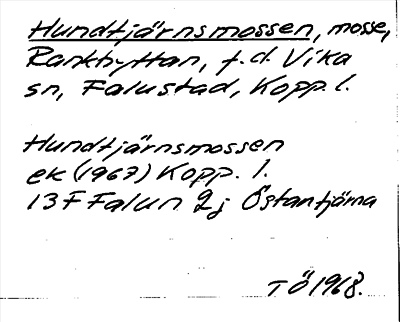 Hundtjärnsmossen, mosse,
Rankhyttan, f.d. Vika
sn, Falustad, Kopp. l.
Hundtjärnsmossen
ek (1967) Kopp. l.
13 F Falun 2j Östantjärna
TÖ 1968.